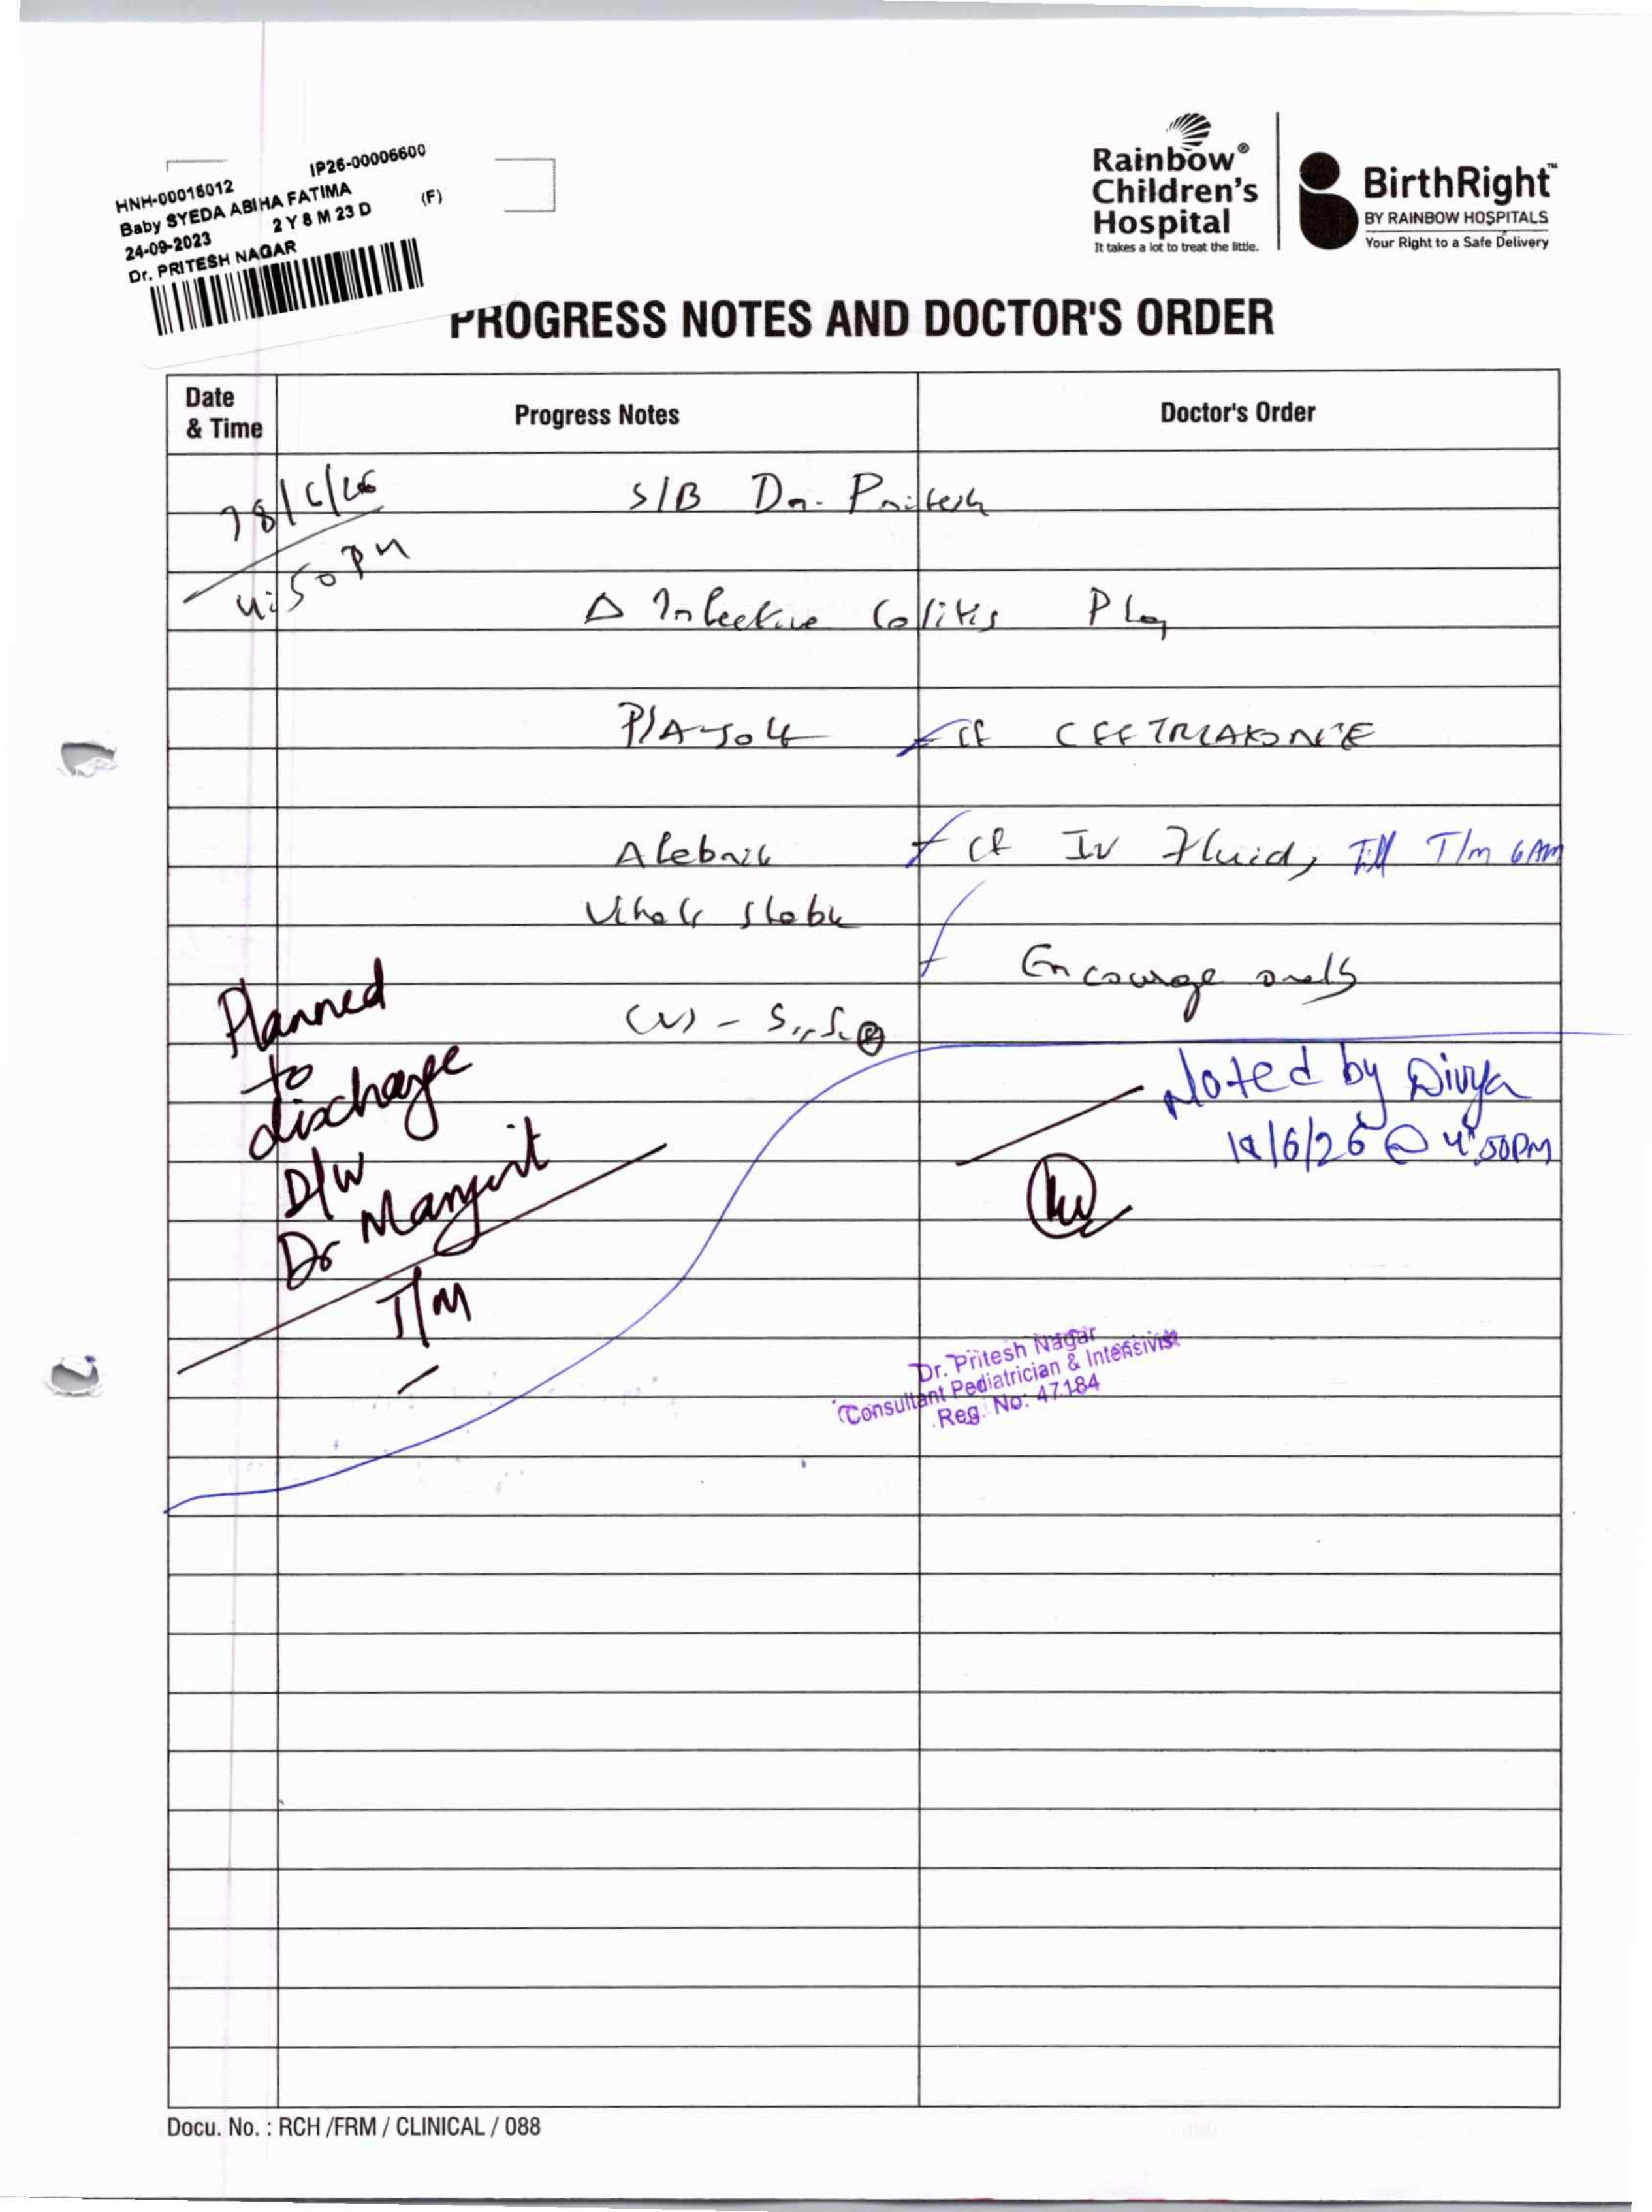 IP26-00006600
HNH-00016012
Baby SYEDA ABIHA FATIMA
24-09-2023 2 Y 8 M 23 D (F)
Dr. PRITESH NAGAR
Rainbow®
Children's
Hospital
It takes a lot to treat the little.
BirthRight™
BY RAINBOW HOSPITALS
Your Right to a Safe Delivery
PROGRESS NOTES AND DOCTOR'S ORDER
Date
& Time
Progress Notes
Doctor's Order
18/6/26
4:50 PM
S/B Dr. Pritesh
Δ Infective Colitis
Plan
P/A-soft
Cf CEFTRIAXONE
Afebrile
Cf IV Fluid, Till T/m 6AM
Vitals stable
Encourage orals
Planned
to
discharge
D/W
Dr Manjirit
T/M
Noted by Divya
18/6/26 @ 4:50PM
Dr. Pritesh Nagar
Consultant Pediatrician & Intensivist
Reg. No: 47184
Docu. No. : RCH /FRM / CLINICAL / 088